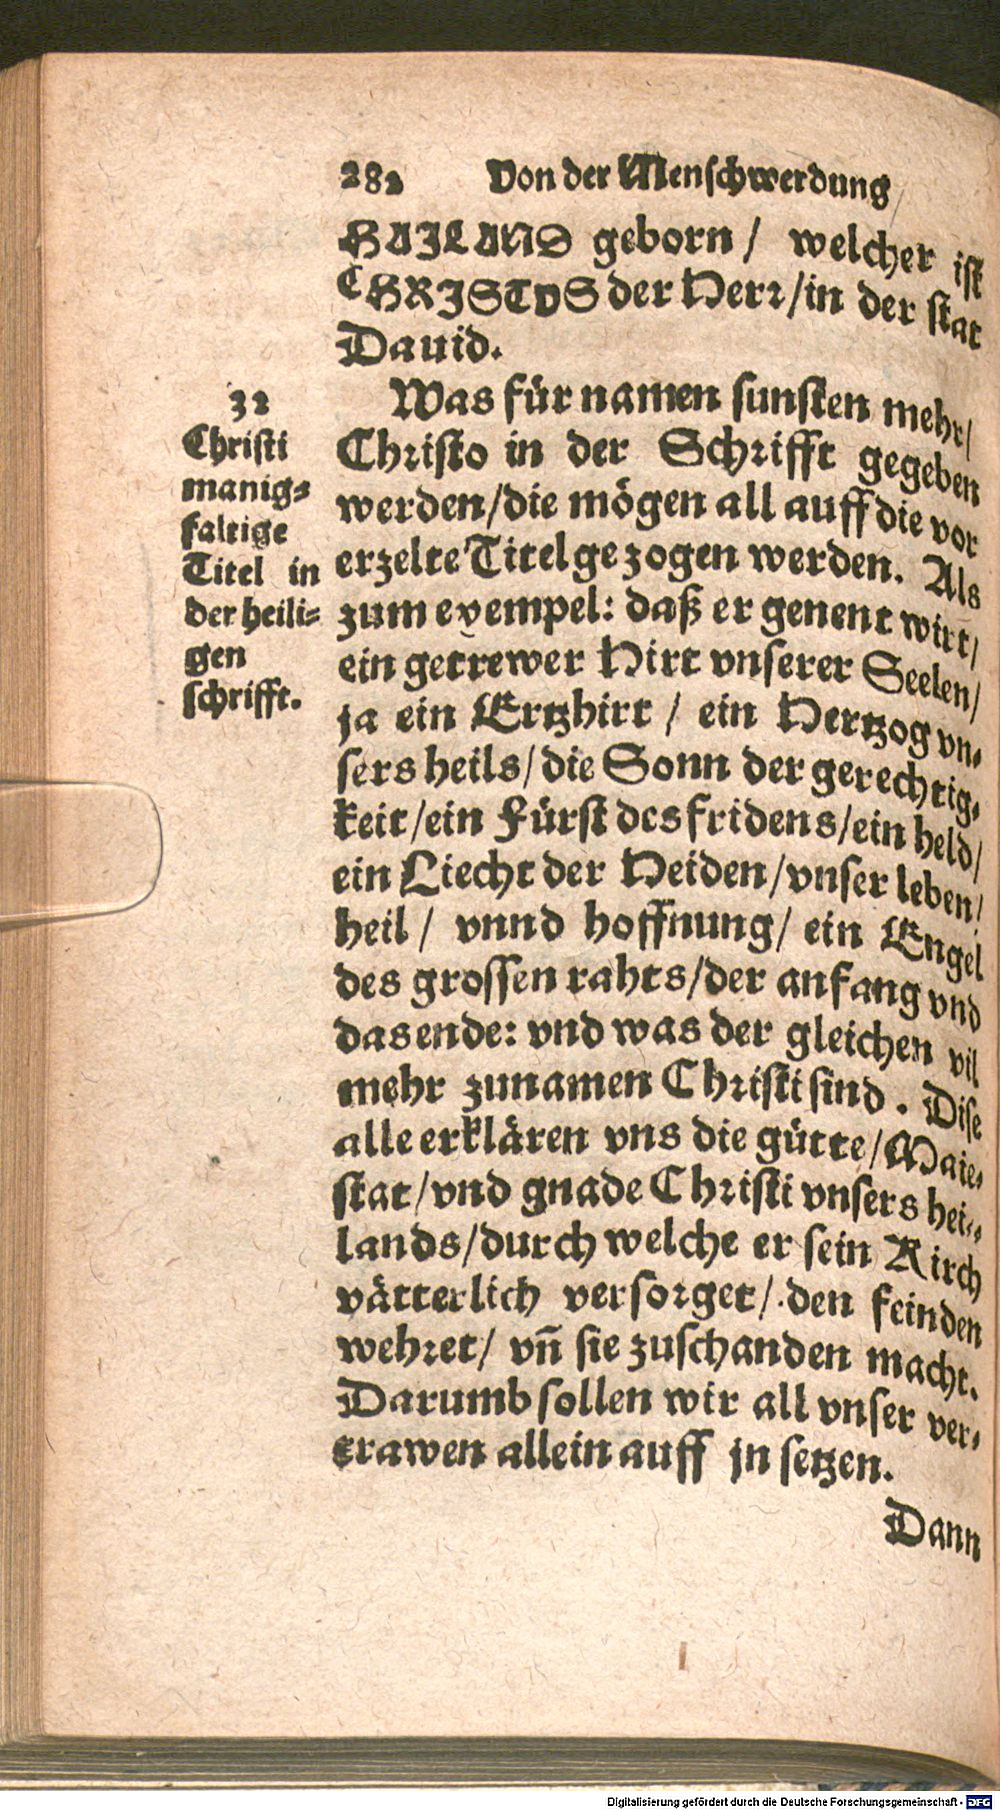 282 Von der Menschwerdung
HAILAND geborn / welcher ist
CHRISTVS der Herr / in der stat
Dauid.
Was für namen sunsten mehr /
Christo in der Schrifft gegeben
werden / die mögen all auff die vor
erzelte Titel gezogen werden. Als
zum exempel: daß er genent wirt /
ein getrewer Hirt vnserer Seelen /
ja ein Ertzhirt / ein Hertzog vn⸗
sers heils / die Sonn der gerechtig⸗
keit / ein Fürst des fridens / ein held /
ein Liecht der Heiden / vnser leben /
heil / vnnd hoffnung / ein Engel
des grossen rahts / der anfang vnd
das ende: vnd was der gleichen vil
mehr zunamen Christi sind. Dise
alle erklären vns die gütte / Maie⸗
stat / vnd gnade Christi vnsers hei⸗
lands / durch welche er sein Kirch
vätterlich versorget / den feinden
wehret / vñ sie zuschanden macht.
Darumb sollen wir all vnser ver⸗
trawen allein auff jn setzen.
Dann
32
Christi
manig⸗
faltige
Titel in
der heili⸗
gen
schrifft.
Digitalisierung gefördert durch die Deutsche Forschungsgemeinschaft - DFG